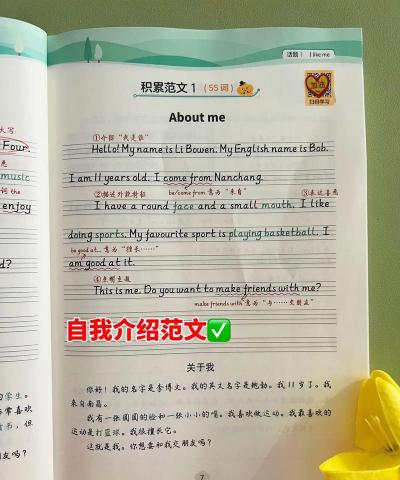 话题1 I like me
积累范文1(55词)
扫码学习
About me
①介绍“我是谁”
Hello! My name is Li Bowen. My English name is Bob.
I am 11 years old. I come from Nanchang.
②描述外貌特征 be/come from 意为“来自” ③表达喜恶
I have a round face and a small mouth. I like
doing sports. My favourite sport is playing basketball. I
be good at... 意为“擅长……”
am good at it.
④点明主题
This is me. Do you want to make friends with me?
make friends with 意为“与……交朋友”
自我介绍范文✅
关于我
你好!我的名字是李博文。我的英文名字是鲍勃。我11岁了。我
来自南昌。
我有一张圆圆的脸和一张小小的嘴。我喜欢做运动。我最喜欢的
运动是打篮球。我很擅长它。
这就是我。你想要和我交朋友吗?
7
大写
Four
music
词 the
enjoy
d?
的学生。
常喜欢
书,但
朋友吗?